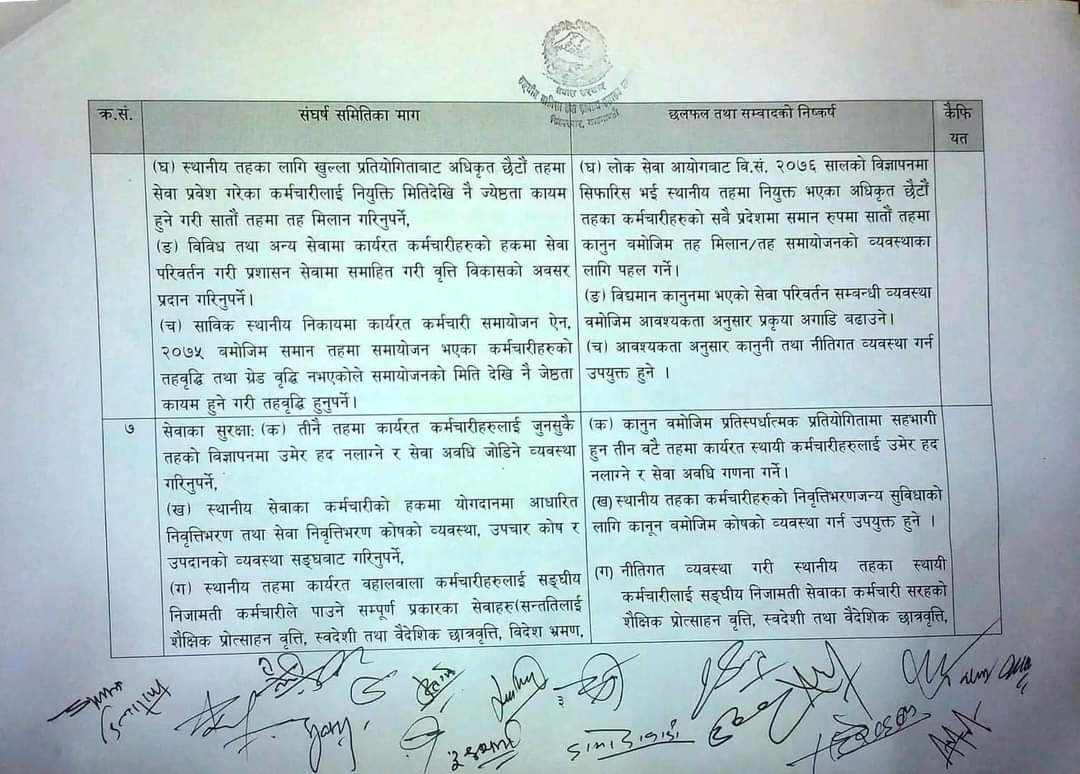 नेपाल सरकार
क्र.सं.
संघर्ष समितिका माग
छलफल तथा सम्वादको निष्कर्ष
कैफि
यत
(घ) स्थानीय तहका लागि खुल्ला प्रतियोगिताबाट अधिकृत छैटौं तहमा
सेवा प्रवेश गरेका कर्मचारीलाई नियुक्ति मितिदेखि नै ज्येष्ठता कायम
हुने गरी सातौं तहमा तह मिलान गरिनुपर्ने,
(ङ) विविध तथा अन्य सेवामा कार्यरत कर्मचारीहरुको हकमा सेवा
परिवर्तन गरी प्रशासन सेवामा समाहित गरी वृत्ति विकासको अवसर
प्रदान गरिनुपर्ने।
(च) साविक स्थानीय निकायमा कार्यरत कर्मचारी समायोजन ऐन,
२०७५ बमोजिम समान तहमा समायोजन भएका कर्मचारीहरुको
तहवृद्धि तथा ग्रेड वृद्धि नभएकोले समायोजनको मिति देखि नै जेष्ठता
कायम हुने गरी तहवृद्धि हुनुपर्ने।
(घ) लोक सेवा आयोगवाट वि.सं. २०७६ सालको विज्ञापनमा
सिफारिस भई स्थानीय तहमा नियुक्त भएका अधिकृत छैटौं
तहका कर्मचारीहरुको सवै प्रदेशमा समान रुपमा सातौं तहमा
कानुन वमोजिम तह मिलान/तह समायोजनको व्यवस्थाका
लागि पहल गर्ने।
(ङ) विद्यमान कानुनमा भएको सेवा परिवर्तन सम्बन्धी व्यवस्था
वमोजिम आवश्यकता अनुसार प्रकृया अगाडि बढाउने।
(च) आवश्यकता अनुसार कानुनी तथा नीतिगत व्यवस्था गर्न
उपयुक्त हुने ।
७
सेवाका सुरक्षा: (क) तीनै तहमा कार्यरत कर्मचारीहरुलाई जुनसुकै
तहको विज्ञापनमा उमेर हद नलाग्ने र सेवा अवधि जोडिने व्यवस्था
गरिनुपर्ने,
(ख) स्थानीय सेवाका कर्मचारीको हकमा योगदानमा आधारित
निवृत्तिभरण तथा सेवा निवृत्तिभरण कोषको व्यवस्था, उपचार कोष र
उपदानको व्यवस्था सङ्घवाट गरिनुपर्ने,
(ग) स्थानीय तहमा कार्यरत वहालवाला कर्मचारीहरुलाई सङ्घीय
निजामती कर्मचारीले पाउने सम्पूर्ण प्रकारका सेवाहरु(सन्ततिलाई
शैक्षिक प्रोत्साहन वृत्ति, स्वदेशी तथा वैदेशिक छात्रवृत्ति, विदेश भ्रमण,
(क) कानुन वमोजिम प्रतिस्पर्धात्मक प्रतियोगितामा सहभागी
हुन तीन वटै तहमा कार्यरत स्थायी कर्मचारीहरुलाई उमेर हद
नलाग्ने र सेवा अवधि गणना गर्ने।
(ख) स्थानीय तहका कर्मचारीहरुको निवृत्तिभरणजन्य सुविधाको
लागि कानून वमोजिम कोषको व्यवस्था गर्न उपयुक्त हुने ।
(ग) नीतिगत व्यवस्था गरी स्थानीय तहका स्थायी
कर्मचारीलाई सङ्घीय निजामती सेवाका कर्मचारी सरहको
शैक्षिक प्रोत्साहन वृत्ति, स्वदेशी तथा वैदेशिक छात्रवृत्ति,